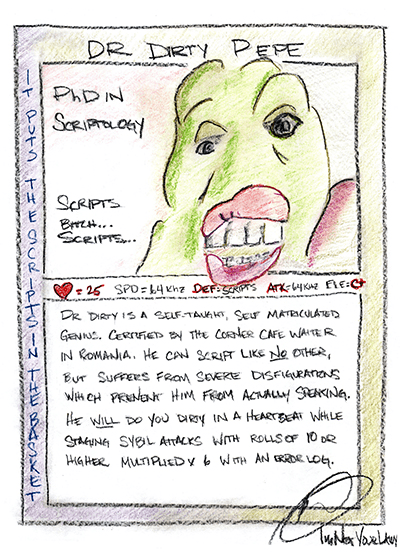 DR DIRTY PEPE
IT PUTS THE SCRIPTS IN THE BASKET
PhD IN
SCRIPTOLOGY
SCRIPTS
BITCH...
SCRIPTS...
= 25 SPD = 64 KHZ DEF: SCRIPTS ATK- 64 KHZ ELE: C+
DR DIRTY IS A SELF-TAUGHT, SELF MATRICULATED
GENIUS. CERTIFIED BY THE CORNER CAFE WAITER
IN ROMANIA. HE CAN SCRIPT LIKE NO OTHER,
BUT SUFFERS FROM SEVERE DISFIGURATIONS
WHICH PREVENT HIM FROM ACTUALLY SPEAKING.
HE WILL DO YOU DIRTY IN A HEARTBEAT WHILE
STAGING SYBIL ATTACKS WITH ROLLS OF 10 OR
HIGHER MULTIPLIED X 6 WITH AN ERROR LOG.